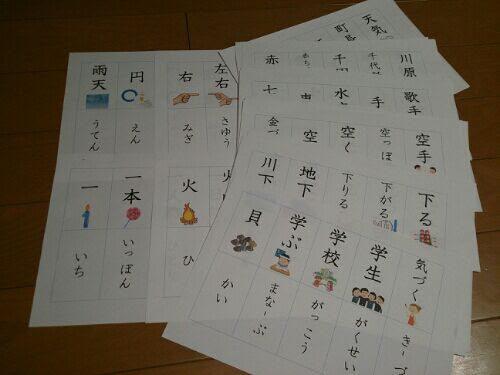 雨天
円
右
左右
うてん
えん
みぎ
さゆう
一
一本
火
いち
いっぽん
ひ
天気
町
赤
千
千代
川原
七
水
手
歌手
金づ
空
空く
空っぽ
空手
川下
地下
下りる
下がる
下る
貝
学ぶ
学校
学生
気づく
かい
まなーぶ
がっこう
がくせい
きーづ